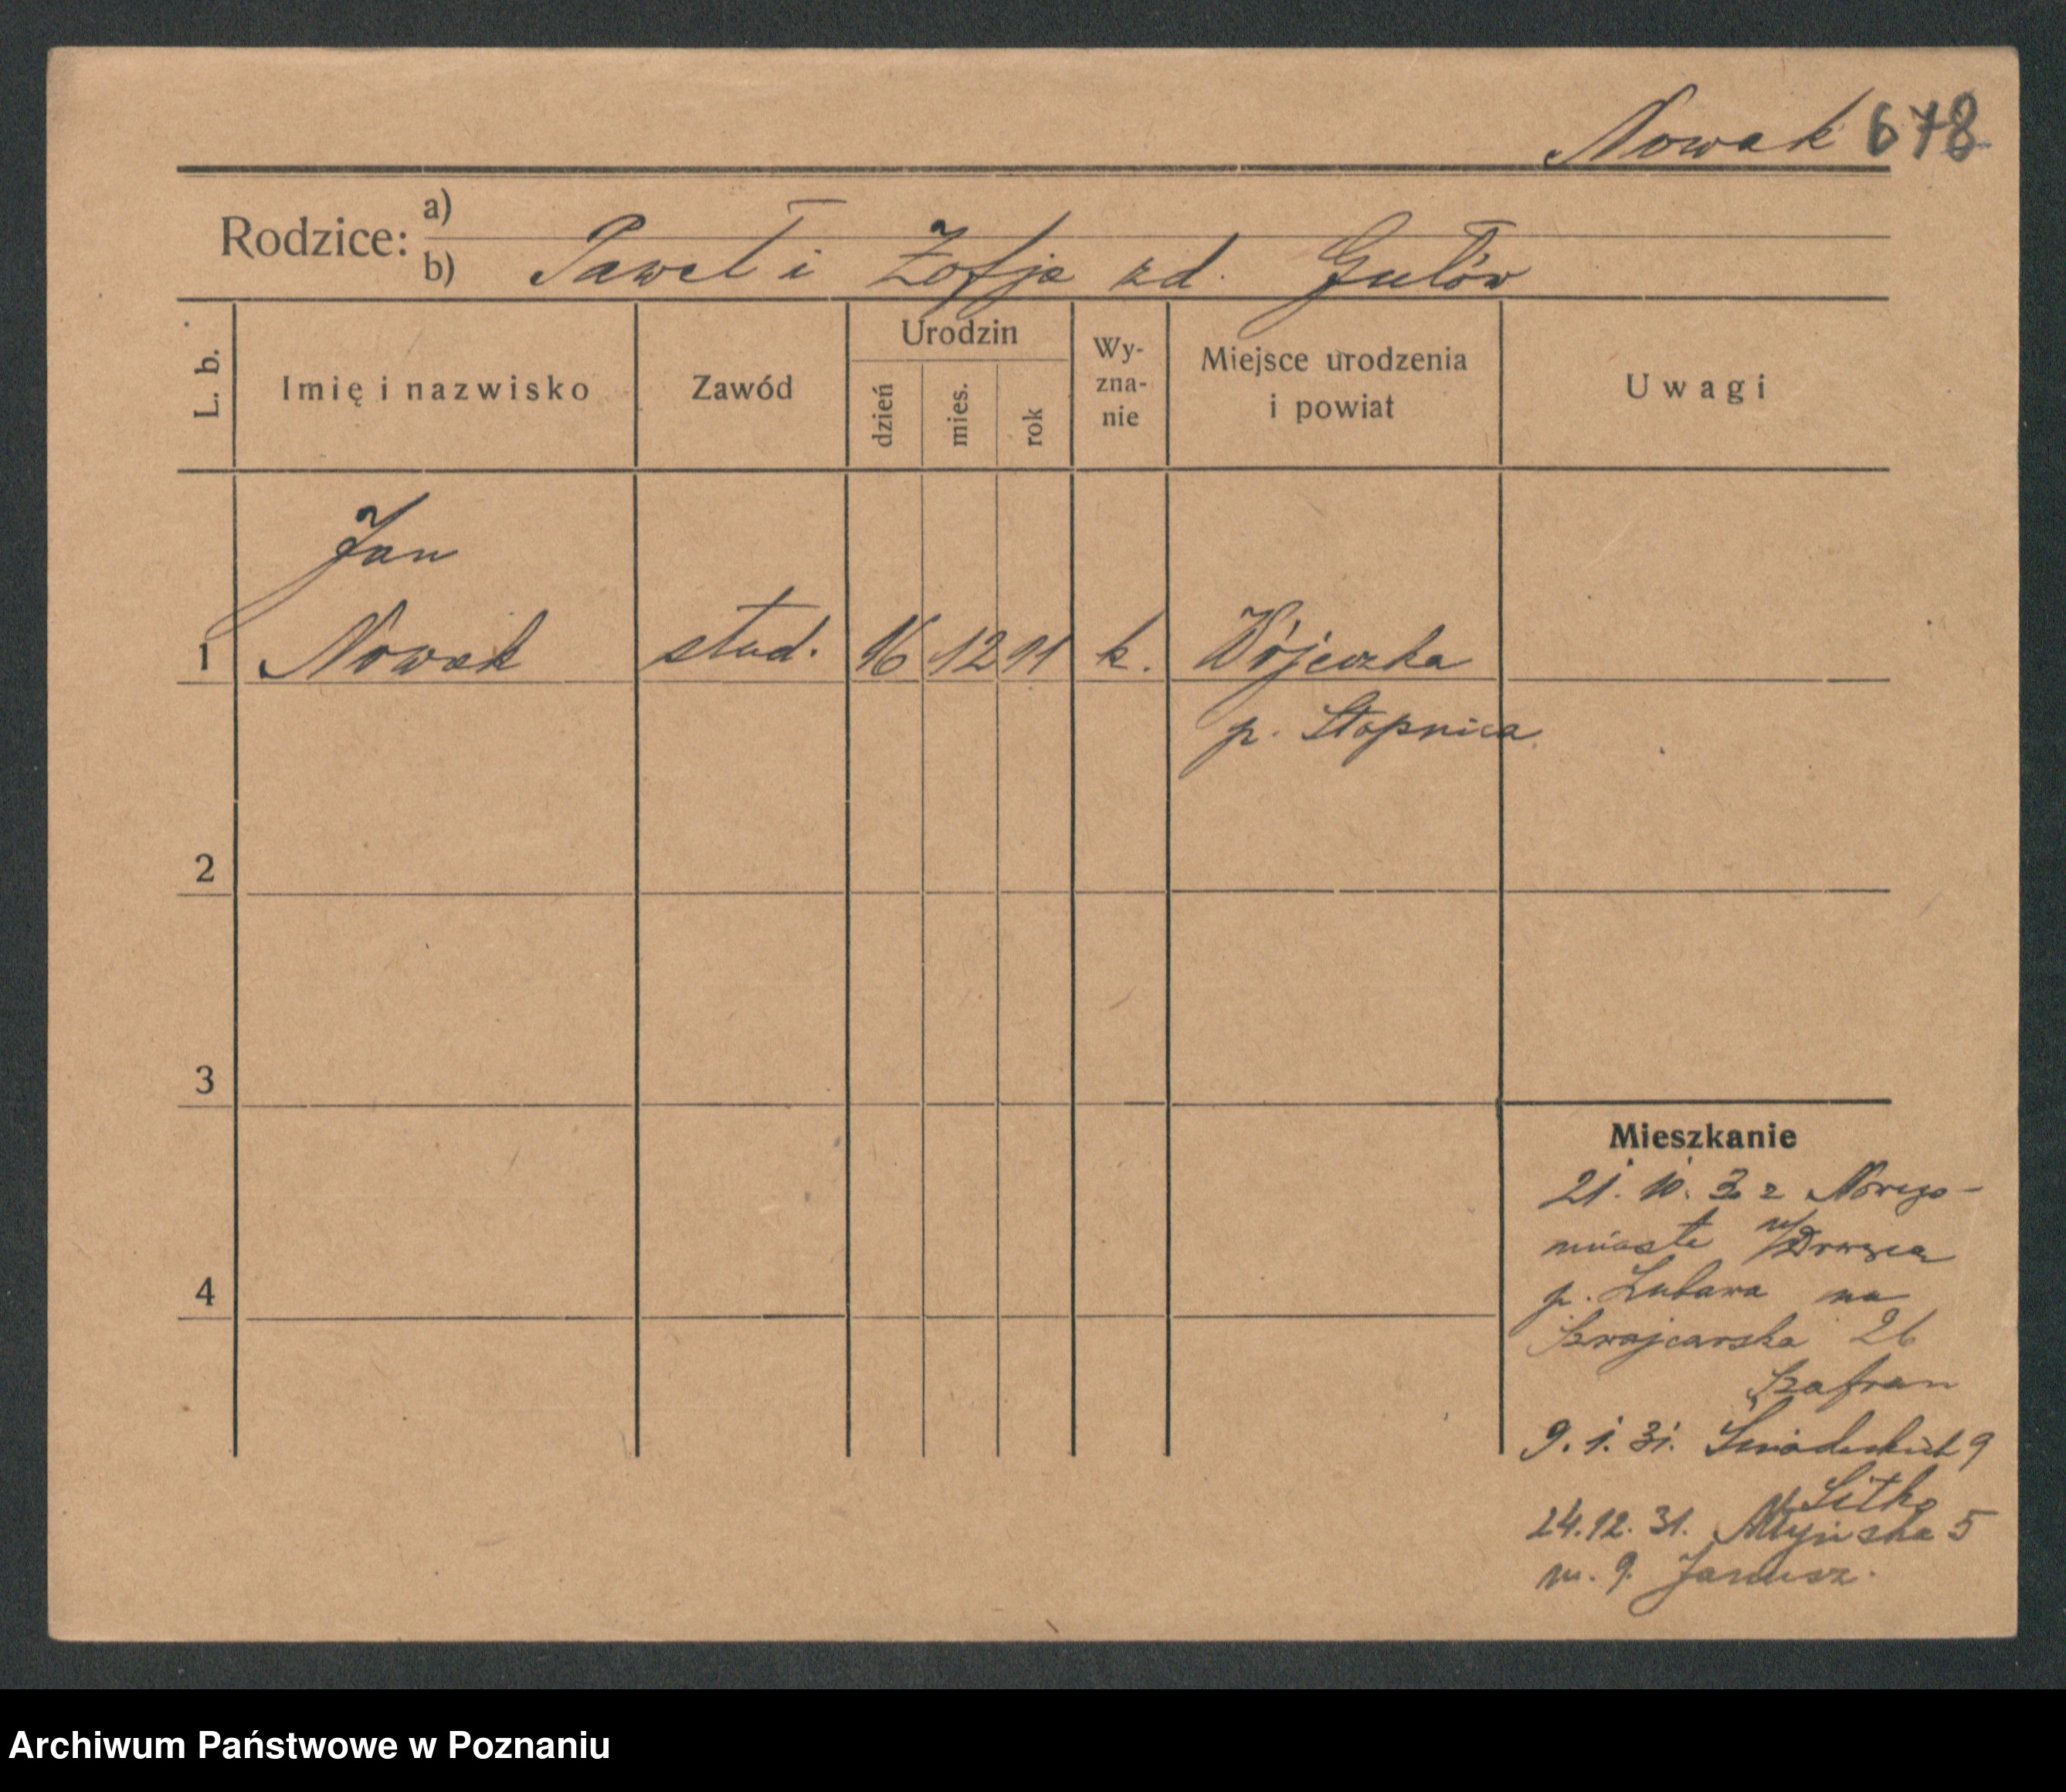 Nowak 678
Rodzice: a)
b) Paweł i Zofja zd. Gułów
L. b. Imię i nazwisko Zawód Urodzin dzień mies. rok Wy-zna-nie Miejsce urodzenia i powiat Uwagi
Jan
1 Nowak stud. 16 12 91 k. Wójeczka
p. Stopnica
2
3
Mieszkanie
21. 10. 30 z Nowego-
miasta n/Drwęcą
4 p. Lubawa na
Szwajcarska 26
Szafran
9. 1. 31. Śniadeckich 9
Sitko
24.12. 31. Młyńska 5
m. 9. Janusz.
Archiwum Państwowe w Poznaniu